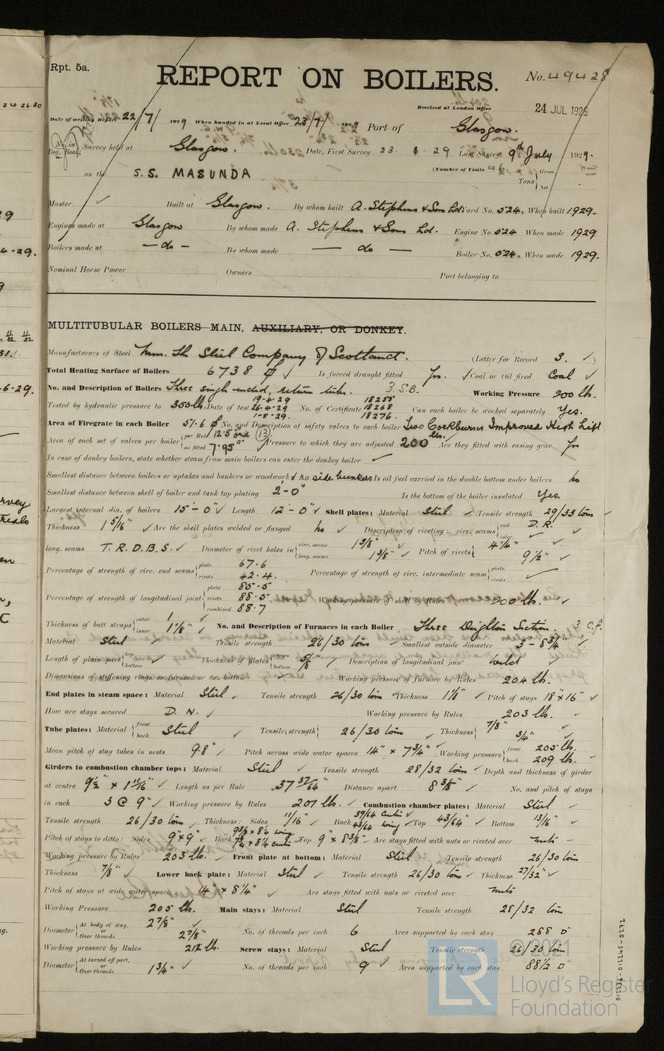 Rpt. 5a.
REPORT ON BOILERS.
No. 49428
Received at London Office
24 JUL 1929
Date of writing Report 22/7/ 1929 When handed in at Local Office 23/7/ 1929 Port of Glasgow.
No. in Reg. Book. Survey held at Glasgow. Date, First Survey 23 . 1 . 29 Last Survey 9th July 1929.
on the S.S. MASUNDA (Number of Visits ) Gross Tons Net
Master Built at Glasgow. By whom built A. Stephen & Sons Ld. Yard No. 524. When built 1929.
Engines made at Glasgow By whom made A. Stephen & Sons Ld. Engine No. 524 When made 1929
Boilers made at — do — By whom made — do — Boiler No. 524. When made 1929.
Nominal Horse Power Owners Port belonging to
MULTITUBULAR BOILERS MAIN, AUXILIARY, OR DONKEY.
Manufacturers of Steel The Steel Company of Scotland. (Letter for Record S. )
Total Heating Surface of Boilers 6738 Is forced draught fitted Yes. Coal or Oil fired Coal
No. and Description of Boilers Three single ended, return tube. 3.S.B. Working Pressure 200 lbs.
Tested by hydraulic pressure to 350 lbs. Date of test 19-4-29 26-4-29 1-5-29. No. of Certificate 18255 18268 18276. Can each boiler be worked separately Yes.
Area of Firegrate in each Boiler 51.6 No. and Description of safety valves to each boiler Two Cockburns Improved High Lift
Area of each set of valves per boiler per Rule 12.5 as fitted 7.95 Pressure to which they are adjusted 200 lbs. Are they fitted with easing gear Yes
In case of donkey boilers, state whether steam from main boilers can enter the donkey boiler
Smallest distance between boilers or uptakes and bunkers or woodwork no side bunkers Is oil fuel carried in the double bottom under boilers no
Smallest distance between shell of boiler and tank top plating 2'-0" Is the bottom of the boiler insulated Yes.
Largest internal dia. of boilers 15'-0" Length 12'-0" Shell plates: Material Steel Tensile strength 29/33 tons
Thickness 1 5/16" Are the shell plates welded or flanged no Description of riveting: circ. seams end D.R. inter
long. seams T.R.D.B.S. Diameter of rivet holes in circ. seams 1 3/8" long. seams 1 3/8" Pitch of rivets 4 1/4" 9 1/2"
Percentage of strength of circ. end seams plate 67.6 rivets 42.4. Percentage of strength of circ. intermediate seam plate rivets
Percentage of strength of longitudinal joint plate 85.5 rivets 88.5 combined 88.7 Working pressure of shell by Rules 200 lbs.
Thickness of butt straps outer 1" inner 1 1/8" No. and Description of Furnaces in each Boiler Three Deighton Section. 3.C.f.
Material Steel Tensile strength 26/30 tons Smallest outside diameter 3'-8 3/4"
Length of plain part top bottom Thickness of plates crown bottom 5/8" Description of longitudinal joint weld
Dimensions of stiffening rings on furnace or c.c. bottom Working pressure of furnace by Rules 204 lbs.
End plates in steam space: Material Steel Tensile strength 26/30 tons Thickness 1 1/8" Pitch of stays 18" x 16"
How are stays secured D.N. Working pressure by Rules 203 lbs.
Tube plates: Material front back Steel Tensile strength 26/30 tons Thickness 7/8" 3/4"
Mean pitch of stay tubes in nests 9.8" Pitch across wide water spaces 14" x 7 3/4" Working pressure front 205 lbs. back 209 lbs.
Girders to combustion chamber tops: Material Steel Tensile strength 28/32 tons Depth and thickness of girder
at centre 9 1/2" x 1 11/16" Length as per Rule 37 37/64" Distance apart 8 3/8" No. and pitch of stays
in each 3 @ 9" Working pressure by Rules 207 lbs. Combustion chamber plates: Material Steel
Tensile strength 26/30 tons Thickness: Sides 11/16" Back Top 43/64" Bottom 13/16"
Pitch of stays to ditto: Sides 9" x 9" Back Top 9" x 8 3/8" Are stays fitted with nuts or riveted over nuts
Working pressure by Rules 203 lbs. Front plate at bottom: Material Steel Tensile strength 26/30 tons
Thickness 7/8" Lower back plate: Material Steel Tensile strength 26/30 tons Thickness 27/32"
Pitch of stays at wide water space 14" x 8 1/4" Are stays fitted with nuts or riveted over nuts
Working Pressure 205 lbs. Main stays: Material Steel Tensile strength 28/32 tons
Diameter At body of stay 2 7/8" or Over threads 2 7/8" No. of threads per inch 6 Area supported by each stay 288
Working pressure by Rules 212 lbs. Screw stays: Material Steel Tensile strength 26/30 tons
Diameter At turned off part, or Over threads 1 3/4" No. of threads per inch 9 Area supported by each stay 88 1/2
© 2021
LR
Lloyd's Register
Foundation